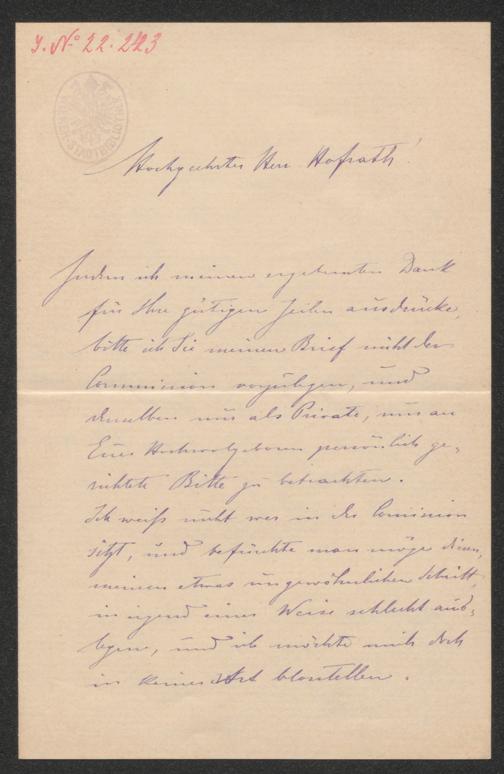 J. № 22.223
Hochgeehrter Herr Hofrath!
Indem ich meinen ergebensten Dank
für Ihre gütigen Zeilen ausdrücke,
bitte ich Sie meinen Brief nicht der
Commission vorzulegen, und
denselben nur als Private, nur an
Euer Hochwolgeboren persönlich ge-
richtete Bitte zu betrachten.
Ich weiß nicht wer in der Comission
sitzt, und befürchte man möge diesen,
meinen etwas ungewöhnlichen Schritt,
in irgend einer Weise schlecht aus-
legen, und ich möchte mich doch
in keiner Art blosstellen.